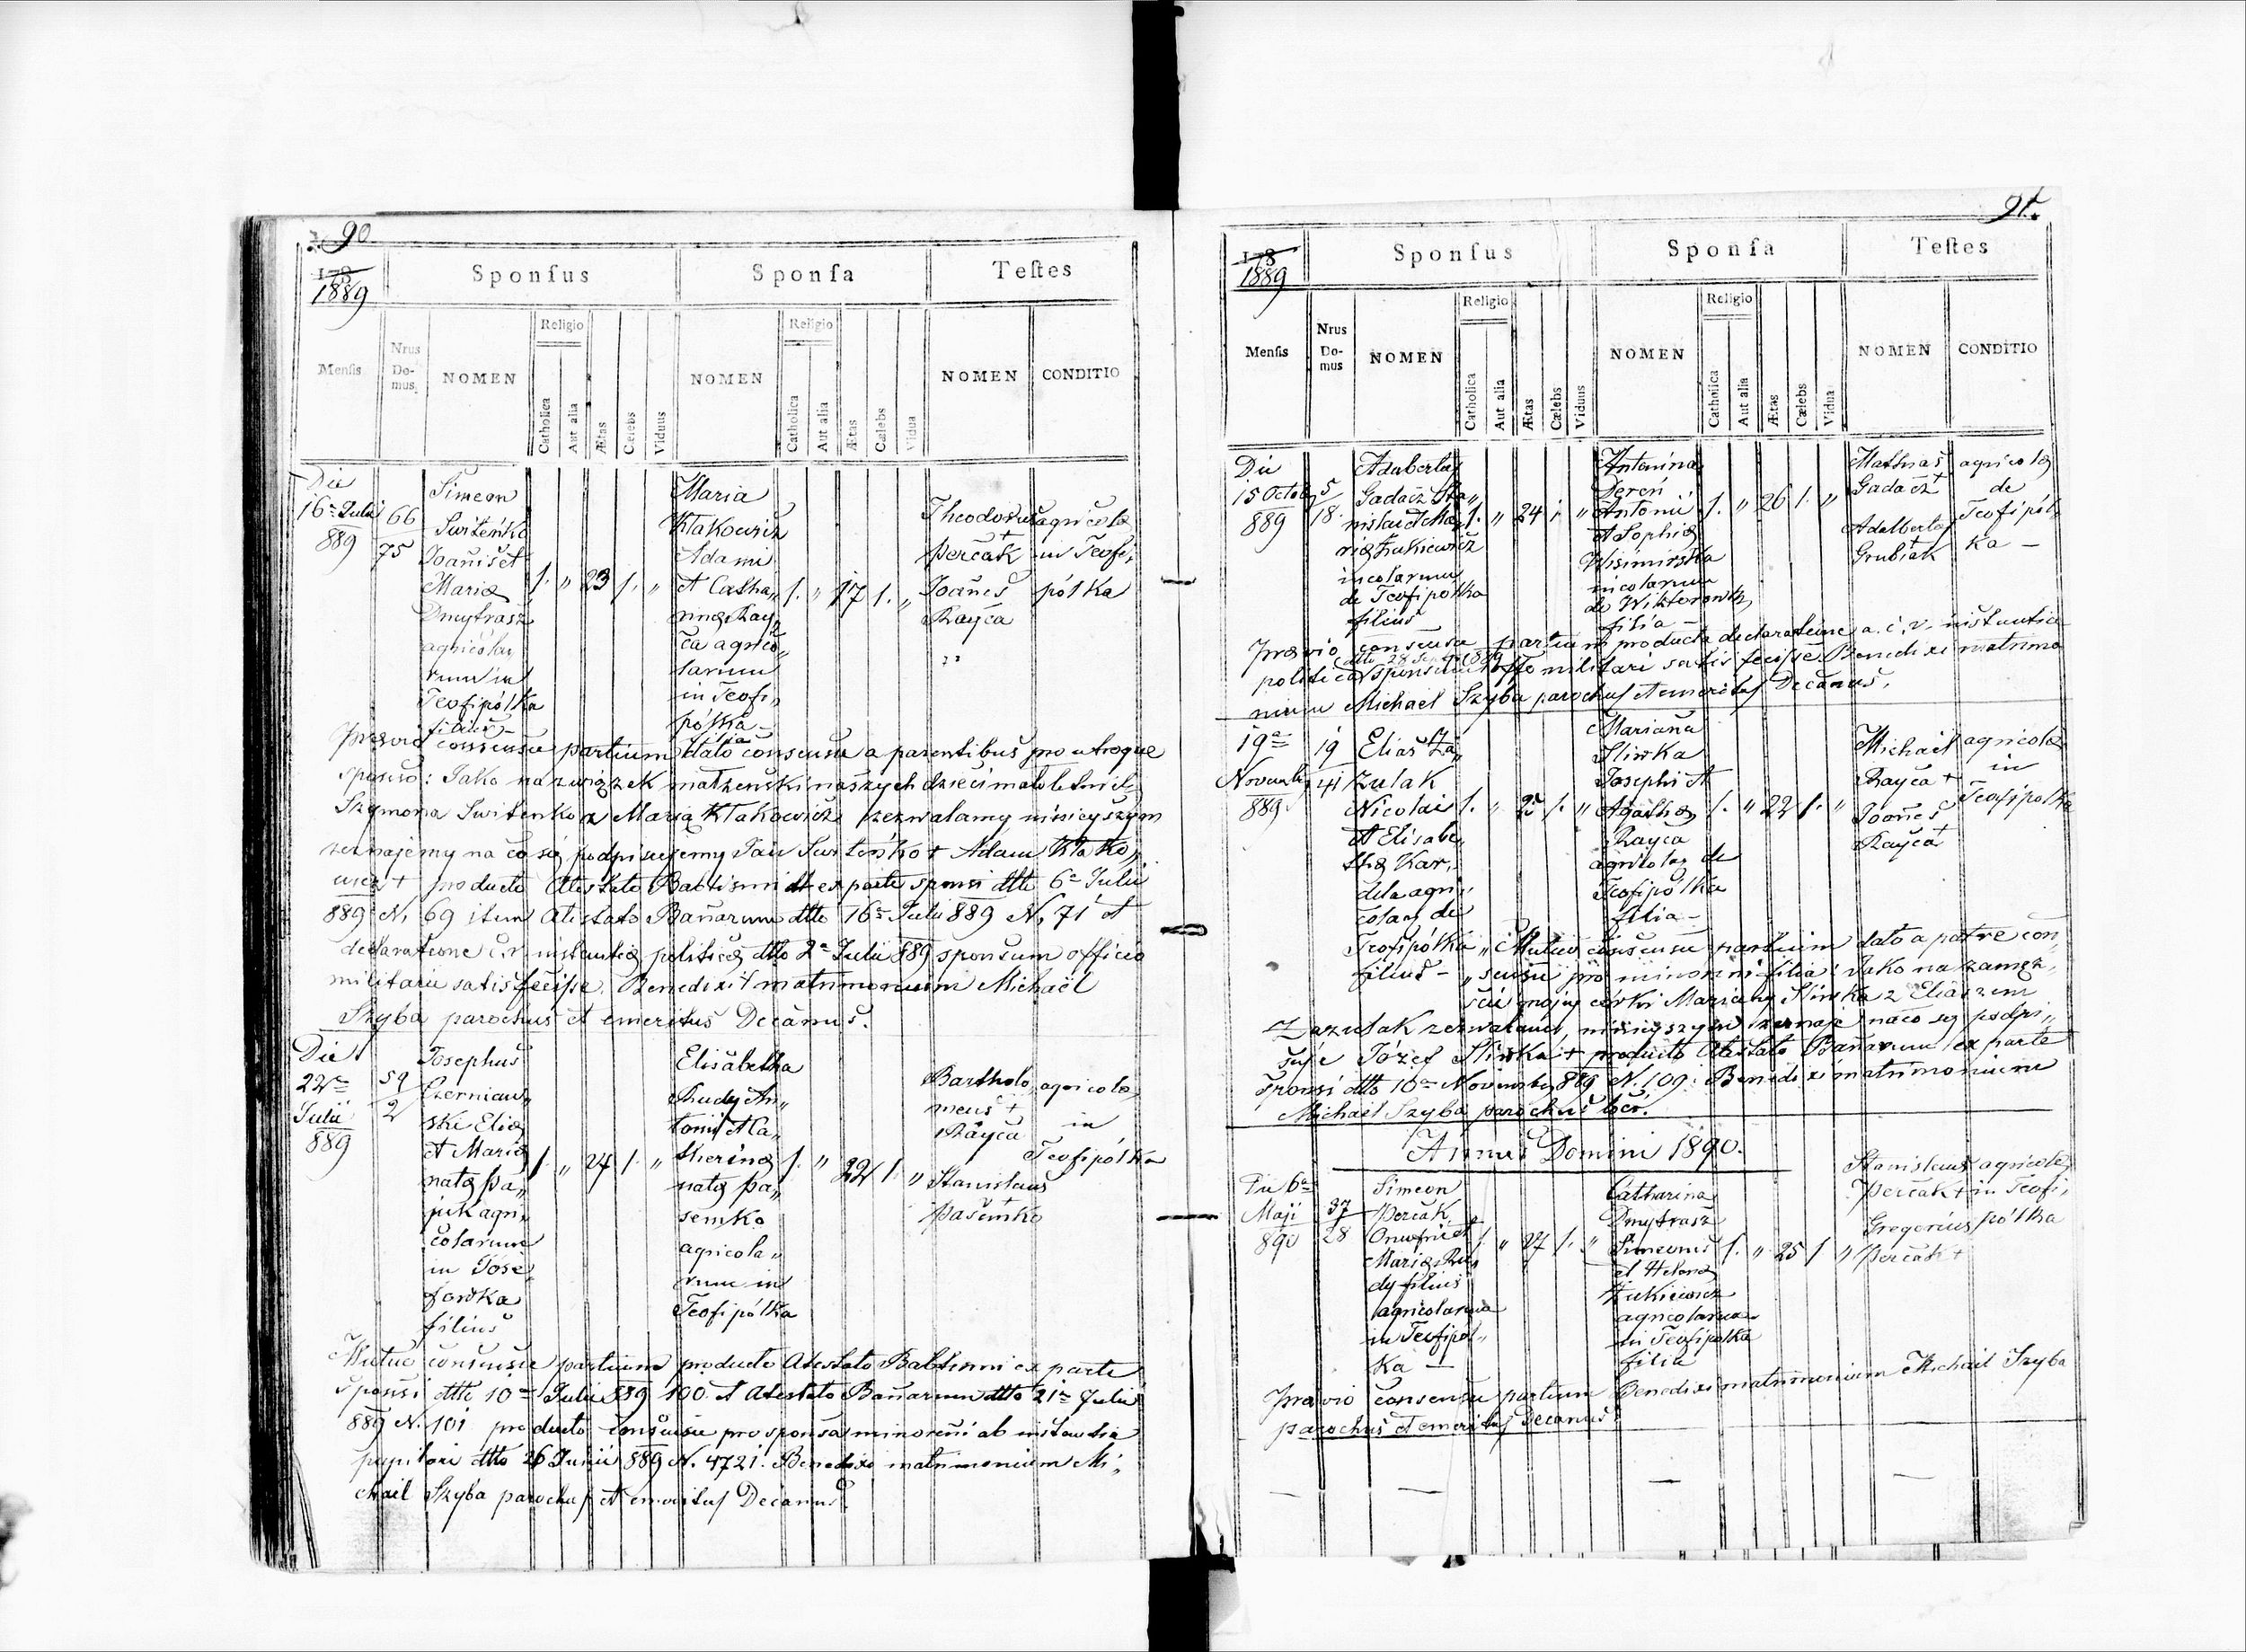 90
178
1889
Sponſus
Sponſa
Teſtes
Menſis
Nrus Do- mus.
NOMEN
Religio
Catholica
Aut alia
Ætas
Cœlebs
Viduus
NOMEN
Religio
Catholica
Aut alia
Ætas
Cælebs
Vidua
NOMEN
CONDITIO
Die
16ª Julii
889
66
75
Simeon
Switeńko
Joannis et
Mariæ
Dmytrasz
agricola„
rum in
Teofipólka
filius –
1. „ 23 1. „
Maria
Kłakowicz
Adami
et Catha„
rinæ Ray„
ca agrico„
larum
in Teofi„
pólka –
filia
1. „ 17 1. „
Theodorus
Perčak +
Joañes
Rayca
agricolæ
in Teofi„
pólka
Prævio consensu partium dato consensu a parentibus pro utroque
sponso: Jako na związek małżeński naszych dzieci małoletnich
Szymona Switenko z Maryą Kłakowicz zezwalamy niniejszym
zeznajemy na co się podpisujemy Jan Switeńko + Adam Kłako„
wicz + producto Atestato Babtismi et ex parte sponsi dtto 6ª Julii
889 N. 69 item Atestato Bañarum dtto 16ª Julii 889 N. 71 et
declaratione c. r. instantiæ politicæ dtto 2ª Julii 889 sponsum officio
militari satisfecisse. Benedixi matrimonium Michael
Szyba parochus et emeritus Decanus.
Die
22ª
Julii
889
59
2
Josephus
Czerniaw„
ski Eliæ
et Mariæ
natæ Pa„
juk agri„
colarum
in Jose„
fowka
filius
1. „ 24 1. „
Elisabetha
Rudy An„
tonii et Ca„
therinæ
natæ Pa„
semko
agricola„
rum in
Teofipólka
1. „ 22 1. „
Bartholo„
meus +
Rayca
Stanislaus +
Pasemko
agricolæ
in
Teofipólka
Mutuo consensu partium producto Atestato Babtismi ex parte
Sponsi dtto 10ª Julii 889 100. et Atestato Bañarum dtto 21ª Julii
889 N. 101 producto consensu pro sponsa minoreñi ab instantia
pupilari dtto 26 Junii 889 N. 4721. Benedixi matrimonium Mi„
chail Szyba parochus et emeritus Decanus.
91.
178
1889
Sponſus
Sponſa
Teſtes
Menſis
Nrus Do- mus
NOMEN
Religio
Catholica
Aut alia
Ætas
Cœlebs
Viduus
NOMEN
Religio
Catholica
Aut alia
Ætas
Cælebs
Vidua
NOMEN
CONDITIO
Die
15 Octob
889
5
18.
Adalbertus
Gadacz Sta„
nislai et Ma„
riæ Żukiewicz
incolarum
de Teofipolka
filius
1. „ 24 1. „
Antonina
Dereń
Antonii
et Sophiæ
Wisimirska
incolarum
de Wiktorowka
filia –
1. „ 26 1. „
Mathias
Gadacz +
Adalbertus
Grubiak +
agricolæ
de
Teofipól„
ka –
Prævio consensu partium producta declaratione a. c. r. instantia
politica dtto 28 Sept 889 sponsum offo militari satis fecisse. Benedixi matrimo
nium Michael Szyba parochus et emeritus Decanus.
19ª
Novemb
889
19
41
Elias Za„
zulak
Nicolai
et Elisabe„
thæ Kar„
dela agri„
colar de
Teofipólka
filius –
1. „ 25 1. „
Mariana
Sliwka
Josephi et
Agathæ
Rayca
agricolar de
Teofipólka
filia –
1. „ 22 1. „
Michael
Rayca +
Joañes
Rayca +
agricolæ
in
Teofipolka
„ Mutuo consensu partium dato a patre con„
„ sensu pro minoreni filia: Jako na zamęż„
ście mojej córki Maryany Sliwka z Eliaszem
Zazulak zezwalam, niniejszym zeznaje na co się podpi„
suje Józef Sliwka + producto Atestato Bañarum ex parte
Sponsi dtto 10ª Novembr 889 N. 109. Benedixi matrimonium
Michael Szyba parochus loci.
Annus Domini 1890.
Die 6ª
Maji
890
37
28
Simeon
Perčak
Onufrii et
Mariæ Ru„
dy filius
agricolarum
in Teofipol„
ka –
1. „ 27 1. „
Catharina
Dmytrasz
Simeonis
et Helenæ
Żukiewicz
agricolarum
in Teofipolka
filia
1. „ 25 1 „
Stanislaus
Perčak +
Gregorius
Perčak +
agricolæ
in Teofi„
pólka
Prævio consensu partium Benedixi matrimonium Michail Szyba
parochus et emeritus Decanus.